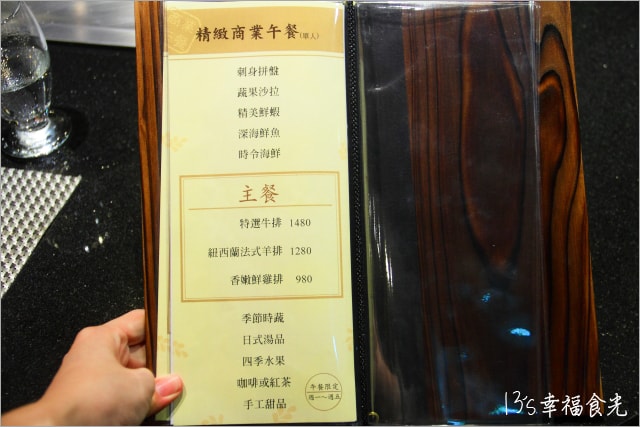 精緻商業午餐(單人)
刺身拼盤
蔬果沙拉
精美鮮蝦
深海鮮魚
時令海鮮
主餐
特選牛排 1480
紐西蘭法式羊排 1280
香嫩鮮雞排 980
季節時蔬
日式湯品
四季水果
咖啡或紅茶
手工甜品
午餐限定
週一～週五
13's.幸福食光